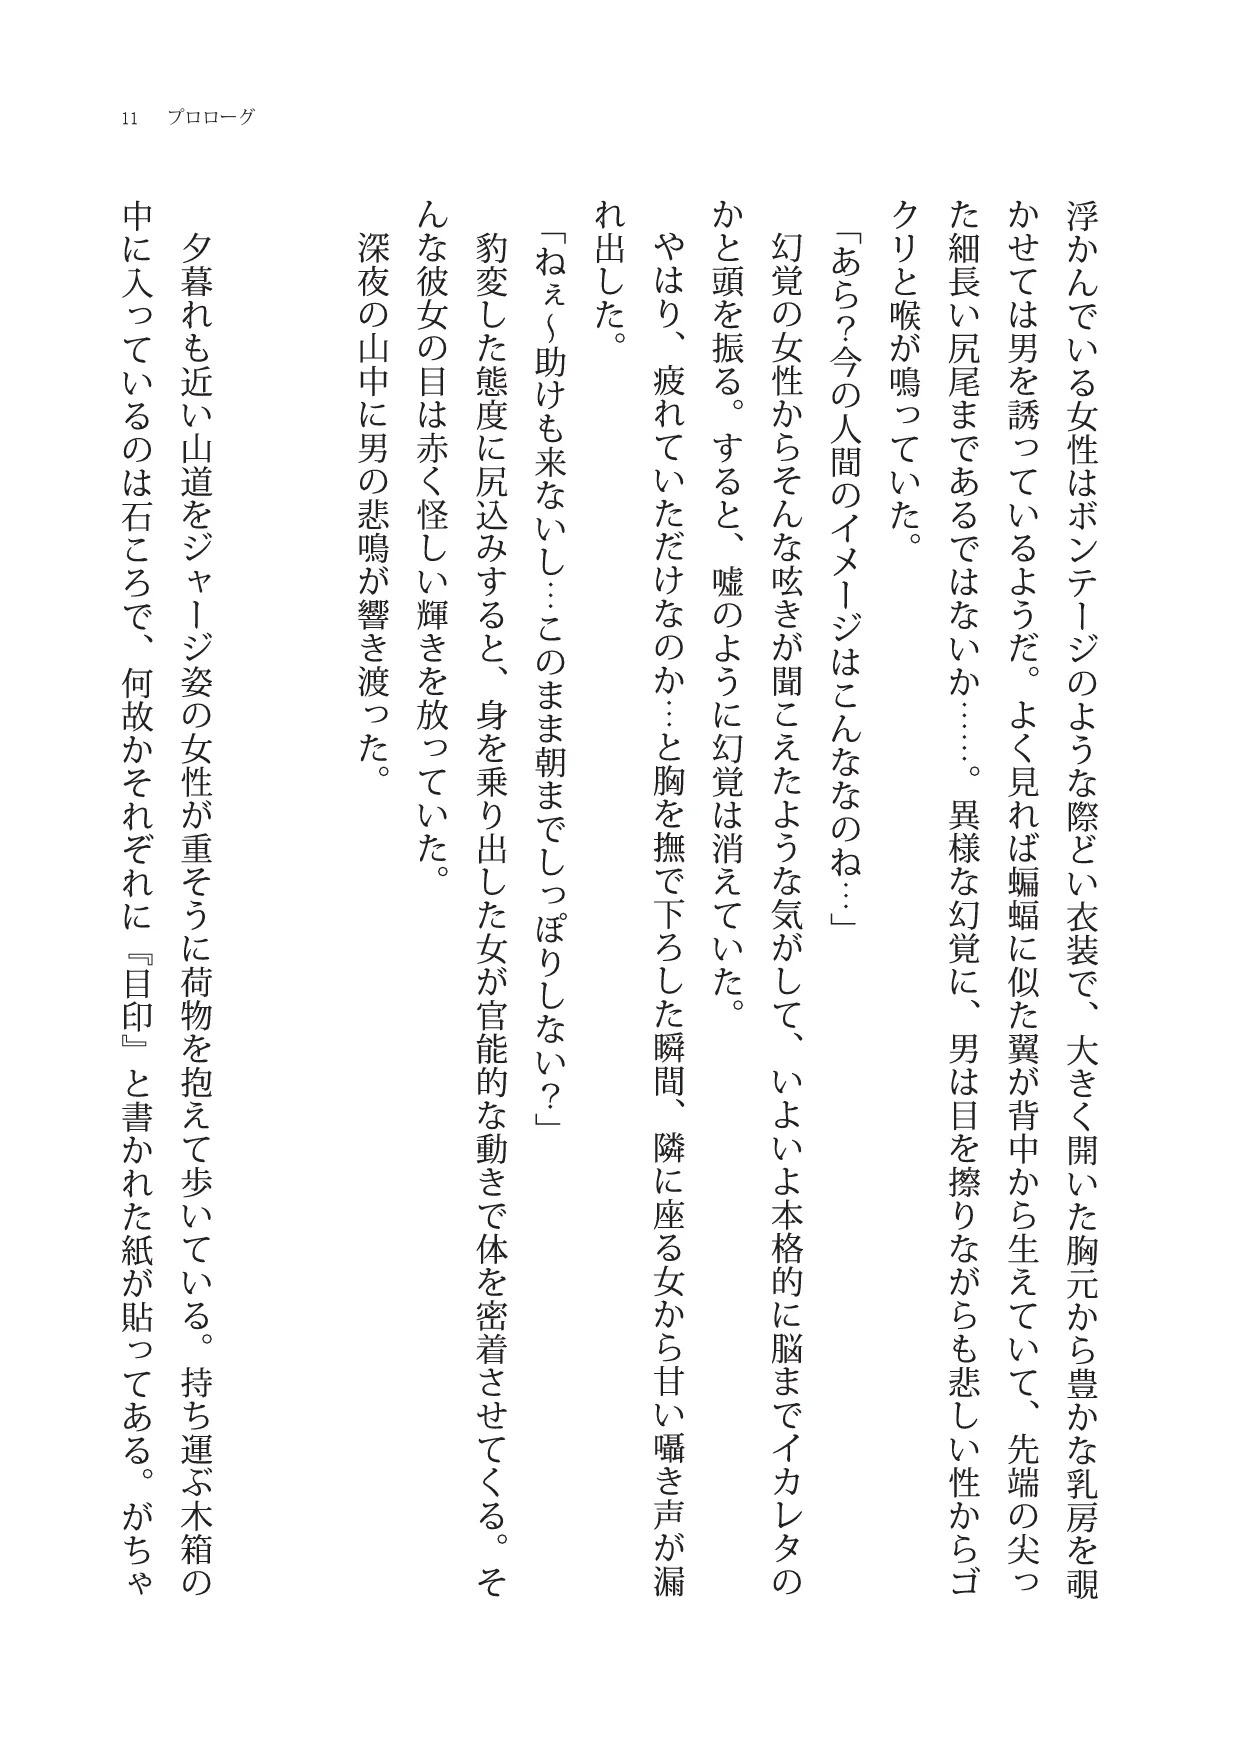 11　プロローグ
浮かんでいる女性はボンテージのような際どい衣装で、大きく開いた胸元から豊かな乳房を覗
かせては男を誘っているようだ。よく見れば蝙蝠に似た翼が背中から生えていて、先端の尖っ
た細長い尻尾まであるではないか……。異様な幻覚に、男は目を擦りながらも悲しい性からゴ
クリと喉が鳴っていた。
「あら？今の人間のイメージはこんななのね…」
幻覚の女性からそんな呟きが聞こえたような気がして、いよいよ本格的に脳までイカレタの
かと頭を振る。すると、嘘のように幻覚は消えていた。
やはり、疲れていただけなのか…と胸を撫で下ろした瞬間、隣に座る女から甘い囁き声が漏
れ出した。
「ねぇ～助けも来ないし…このまま朝までしっぽりしない？」
豹変した態度に尻込みすると、身を乗り出した女が官能的な動きで体を密着させてくる。そ
んな彼女の目は赤く怪しい輝きを放っていた。
深夜の山中に男の悲鳴が響き渡った。
夕暮れも近い山道をジャージ姿の女性が重そうに荷物を抱えて歩いている。持ち運ぶ木箱の
中に入っているのは石ころで、何故かそれぞれに『目印』と書かれた紙が貼ってある。がちゃ